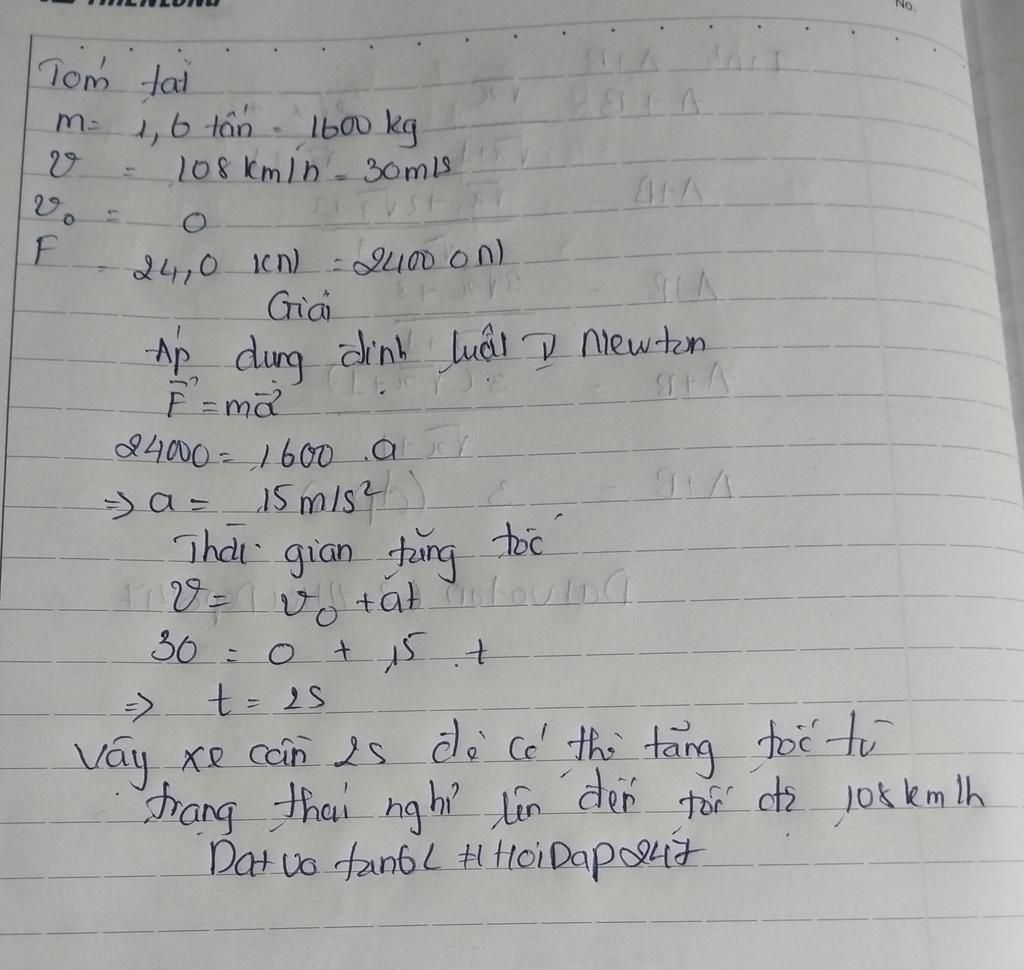 THIENLONG
No.
Tóm tắt
m= 1,6 tấn = 1600 kg
v = 108 km/h = 30m/s
v₀ = 0
F = 24,0 kN = 24000N
Giải
Áp dụng định luật II Newton
F⃗ = ma⃗
24000 = 1600 . a
=> a = 15 m/s²
Thời gian tăng tốc
v = v₀ + at
30 = 0 + 15 . t
=> t = 2s
Vậy xe cần 2s để có thể tăng tốc từ
trạng thái nghỉ lên đến tốc độ 108 km/h
Datvotan6L #HoiDap247